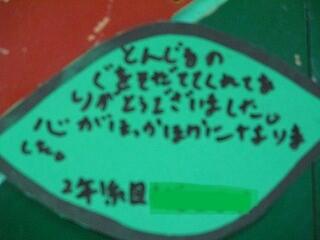 とんじるの
ぐをそだててくれてあ
りがとうございました。
心がほっかほかになりま
した。
2年1組